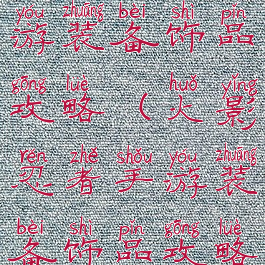 yóu zhuāng bèi shì pǐn
游装备饰品
gōng lüè huǒ yǐng
攻略（火影
rěn zhě shǒu yóu zhuāng
忍者手游装
bèi shì pǐn gōng lüè
备饰品攻略